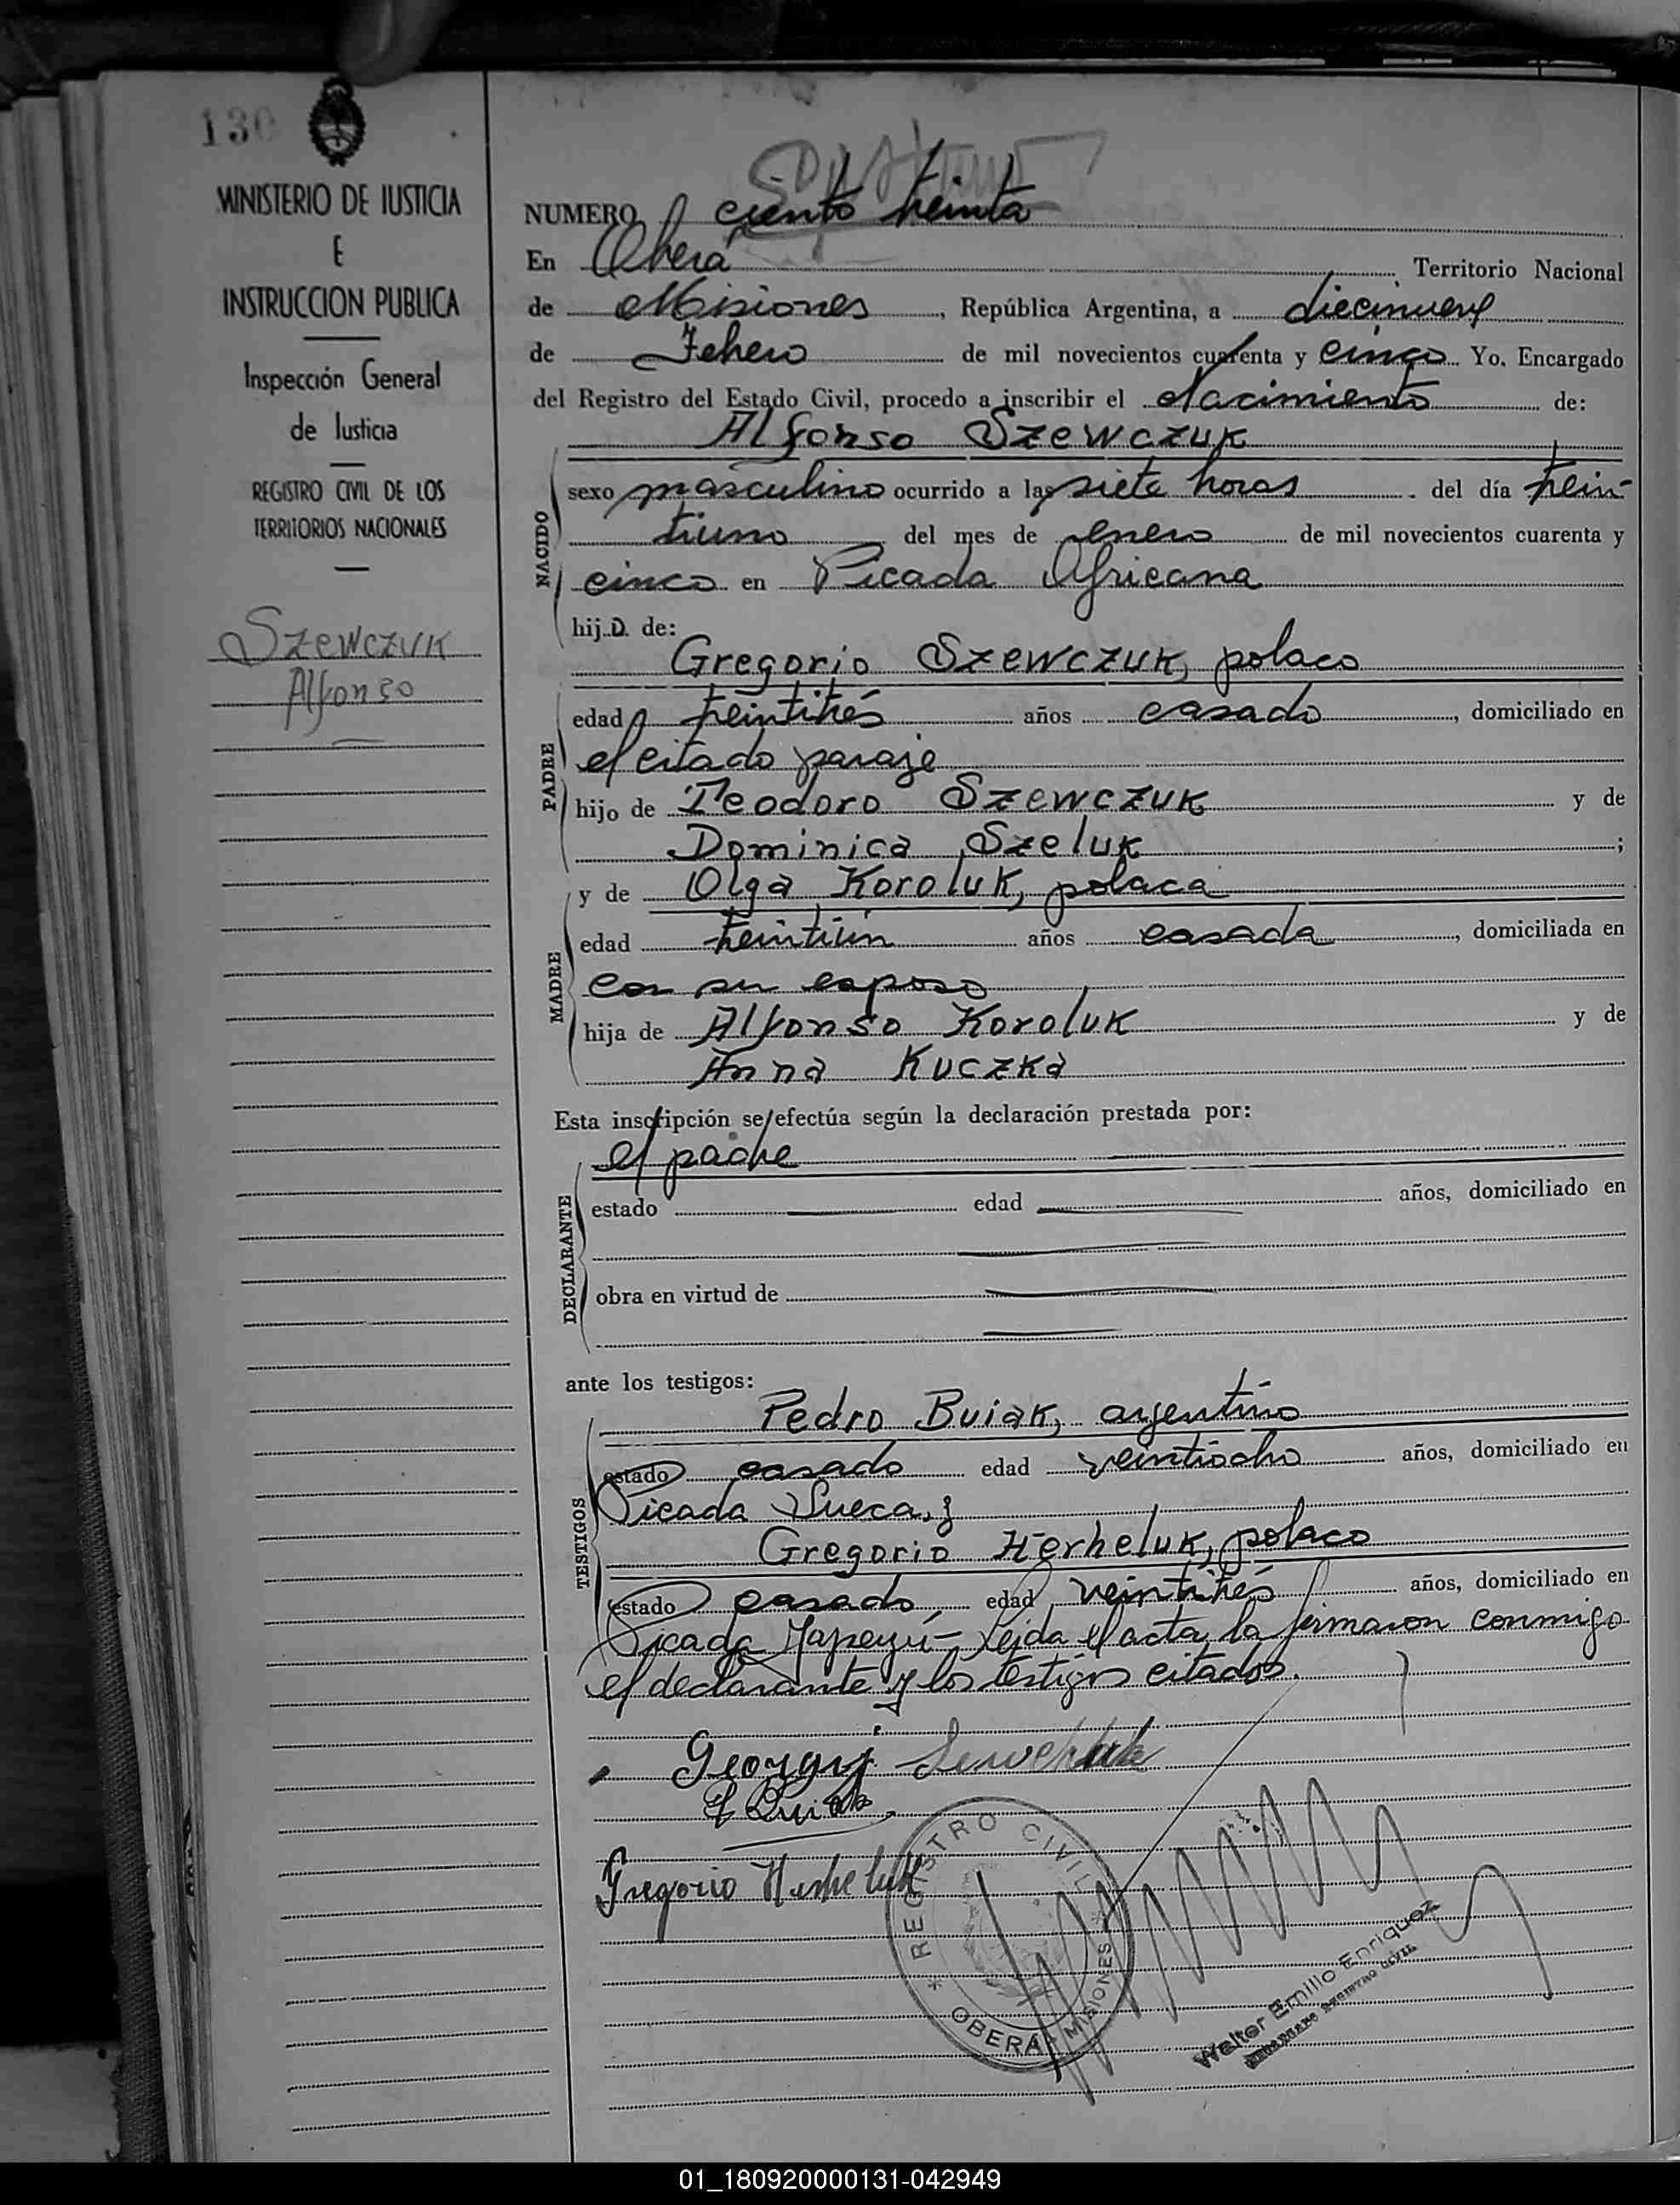 130
MINISTERIO DE JUSTICIA
E
INSTRUCCION PUBLICA
Inspección General
de Justicia
REGISTRO CIVIL DE LOS
TERRITORIOS NACIONALES
Szewczuk
Alfonso
NUMERO ciento treinta
En Oberá Territorio Nacional
de Misiones, República Argentina, a diecinueve
de Febrero de mil novecientos cuarenta y cinco Yo, Encargado
del Registro del Estado Civil, procedo a inscribir el Nacimiento de:
Alfonso Szewczuk
NACIDO
sexo masculino ocurrido a las siete horas. del día trein-
tiuno del mes de enero de mil novecientos cuarenta y
cinco en Picada Africana
hijo. de:
Gregorio Szewczuk, polaco
PADRE
edad treintitrés años casado, domiciliado en
el citado paraje
hijo de Teodoro Szewczuk y de
Dominica Szeluk;
y de Olga Koroluk, polaca
MADRE
edad treintiún años casada, domiciliada en
con su esposo
hija de Alfonso Koroluk y de
Anna Kuczka
Esta inscripción se efectúa según la declaración prestada por:
el padre
DECLARANTE
estado edad años, domiciliado en
obra en virtud de
ante los testigos:
TESTIGOS
Pedro Buiak, argentino
estado casado edad veintiocho años, domiciliado en
Picada Sueca, y
Gregorio Herheluk, polaco
estado casado, edad veintitrés años, domiciliado en
Picada Yapeyú- Leída el acta, la firmaron conmigo
el declarante y los testigos citados.
Georgij
P Buiak
Gregorio Herheluk
REGISTRO CIVIL
* OBERÁ - MISIONES *
Walter Emilio Enriquez
ENCARGADO REGISTRO CIVIL
01_180920000131-042949